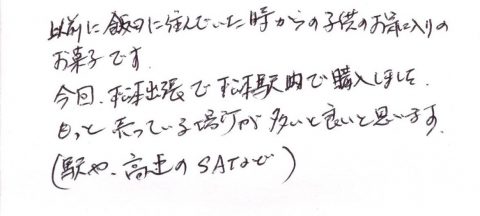 以前に飯田に住んでいた時からの子供のお気に入りの
お菓子です.
今回、松本出張で松本駅内で購入しました.
もっと売っている場所が多いと良いと思います.
(駅や、高速のSAなど)